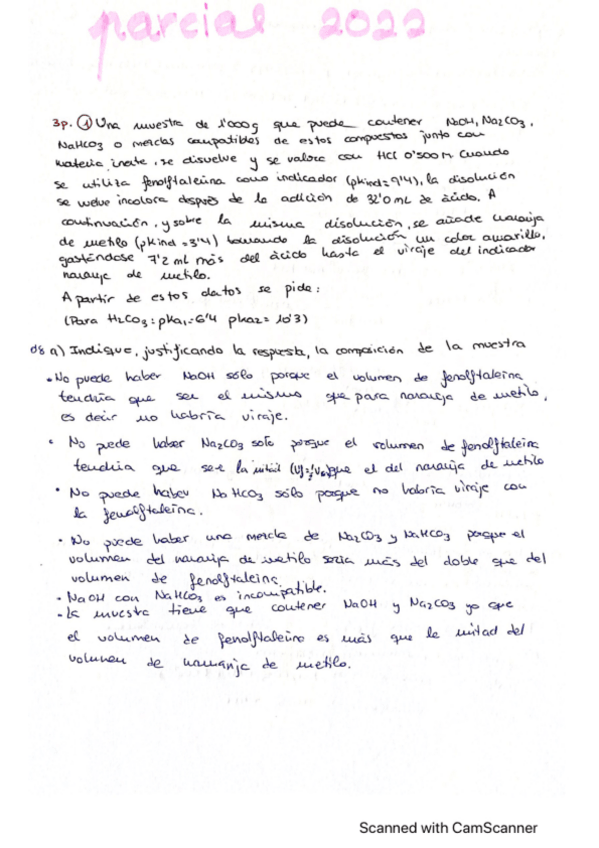 parcial 2022
3p. ① Una muestra de 1'000g que puede contener NaOH, Na2CO3,
NaHCO3 o mezclas compatibles de estos compuestos junto con
materia inerte, se disuelve y se valora con HCl 0'500M. Cuando
se utiliza fenolftaleína como indicador (pkind=9'4), la disolución
se vuelve incolora después de la adición de 32'0 mL de ácido. A
continuación, y sobre la misma disolución, se añade naranja
de metilo (pkind=3'4) tomando la disolución un color amarillo,
gastándose 7'2 mL más del ácido hasta el viraje del indicador
naranja de metilo.
A partir de estos datos se pide:
(Para H2CO3: pka1=6'4 pka2= 10'3)
a) Indique, justificando la respuesta, la composición de la muestra
• No puede haber NaOH sólo porque el volumen de fenolftaleina
tendria que ser el mismo que para naranja de metilo,
es decir no habria viraje.
• No puede haber Na2CO3 solo porque el volumen de fenolftaleina
tendria que ser la mitad que el del naranja de metilo
• No puede haber NaHCO3 sólo porque no habria viraje con
la fenolftaleina.
• No puede haber una mezcla de Na2CO3 y NaHCO3 porque el
volumen del naranja de metilo seria más del doble que del
volumen de fenolftaleina.
• NaOH con NaHCO3 es incompatible.
• La muestra tiene que contener NaOH y Na2CO3 ya que
el volumen de fenolftaleino es más que la mitad del
volumen de naranja de metilo.
Scanned with CamScanner